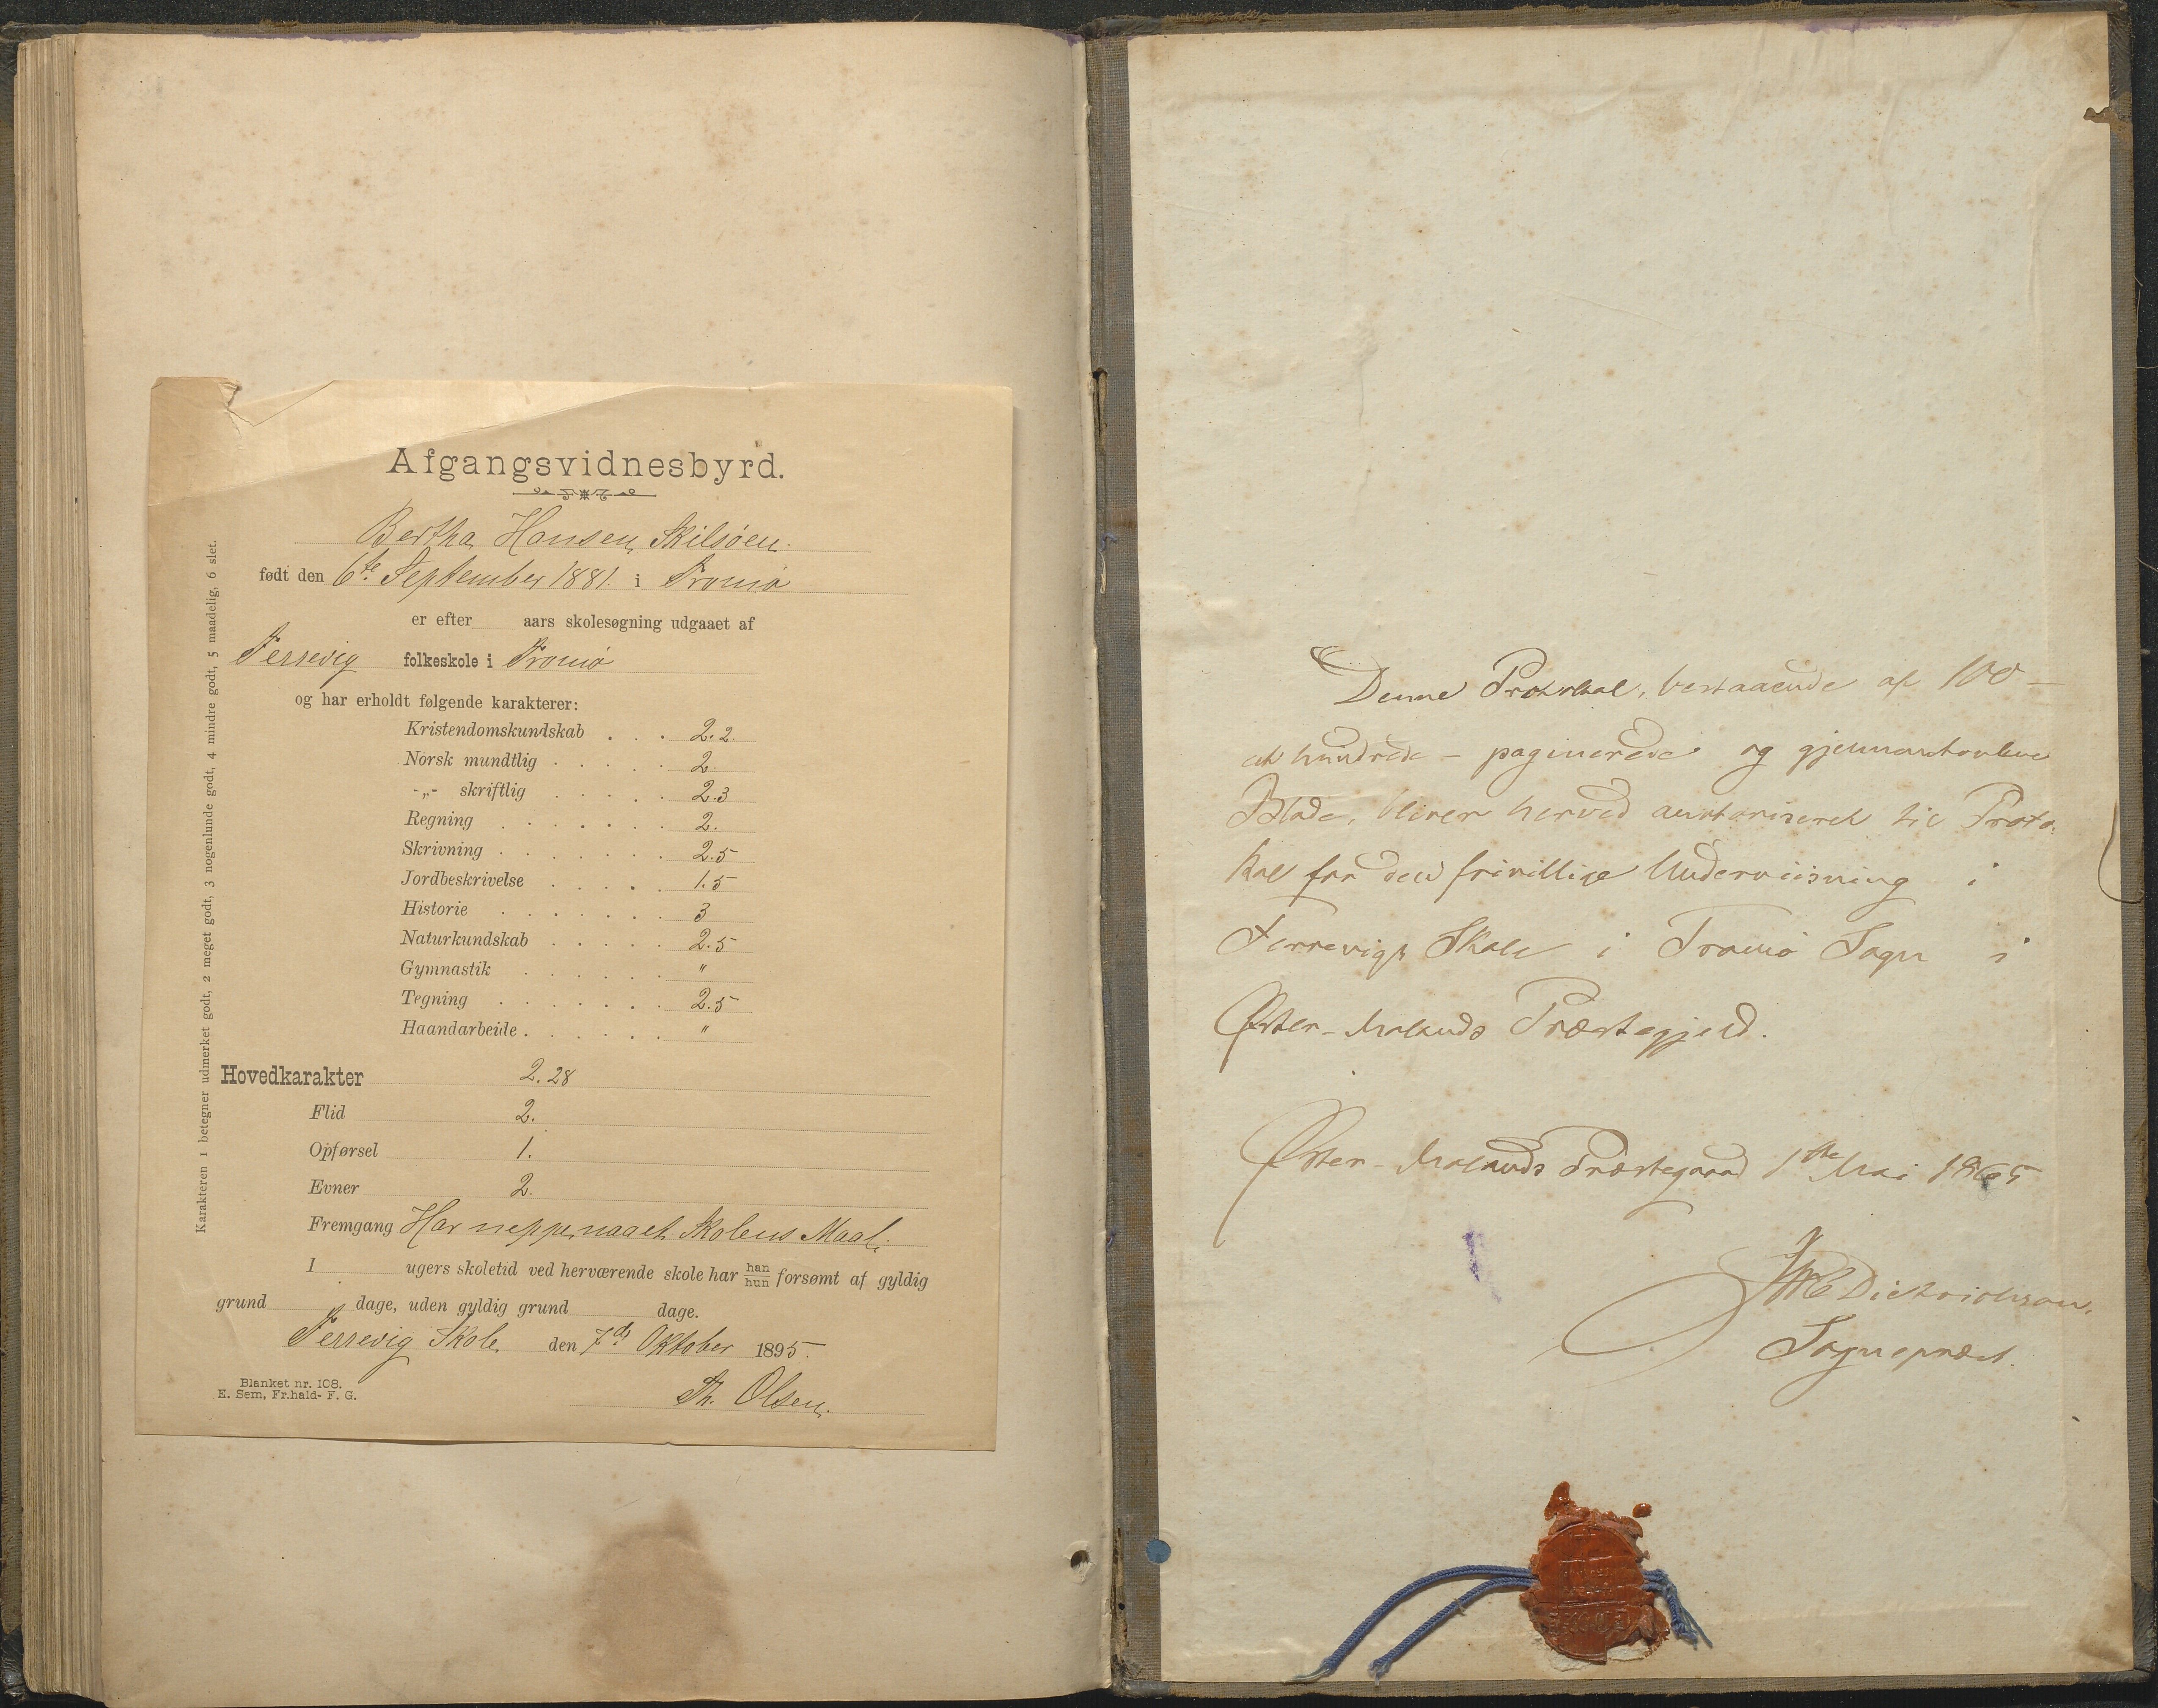 Afgangsvidnesbyrd.
Bertha Hansen Skilsöen.
født den 6te September 1881. i Tromö
er efter aars skolesøgning udgaaet af
Færrevig folkeskole i Tromö
og har erholdt følgende karakterer:
Kristendomskundskab . . . 2.2.
Norsk mundtlig . . . . . 2
-„- skriftlig . . . . . 2.3
Regning . . . . . . 2.
Skrivning . . . . . . . 2.5
Jordbeskrivelse . . . . . 1.5
Historie . . . . . . . 3
Naturkundskab . . . . . 2.5
Gymnastik . . . . . . "
Tegning . . . . . . . 2.5
Haandarbeide . . . . . . "
Hovedkarakter 2.28
Flid 2.
Opførsel 1.
Evner 2.
Fremgang Har neppe naaet Skolens Maal.
I ugers skoletid ved herværende skole har han/hun forsømt af gyldig
grund dage, uden gyldig grund dage.
Færrevig Skole den 7de Oktober 1895.
Th. Olsen.
Blanket nr. 108.
E. Sem, Fr.hald- F. G.
Karakteren 1 betegner udmerket godt, 2 meget godt, 3 nogenlunde godt, 4 mindre godt, 5 maadelig, 6 slet.
Denne Protokol, bestaaende af 100 –
et hundrede – paginerede og gjennemtrukne
Blade, bliver herved authoriseret til Proto-
kol for den frivillige Underviisning i
Færrevigs Skole i Tromö Sogn i
Øster-Molands Præstegjeld.
Øster-Molands Præstegaard 1ste Mai 1865
Dietrichson.
Sognepræst.